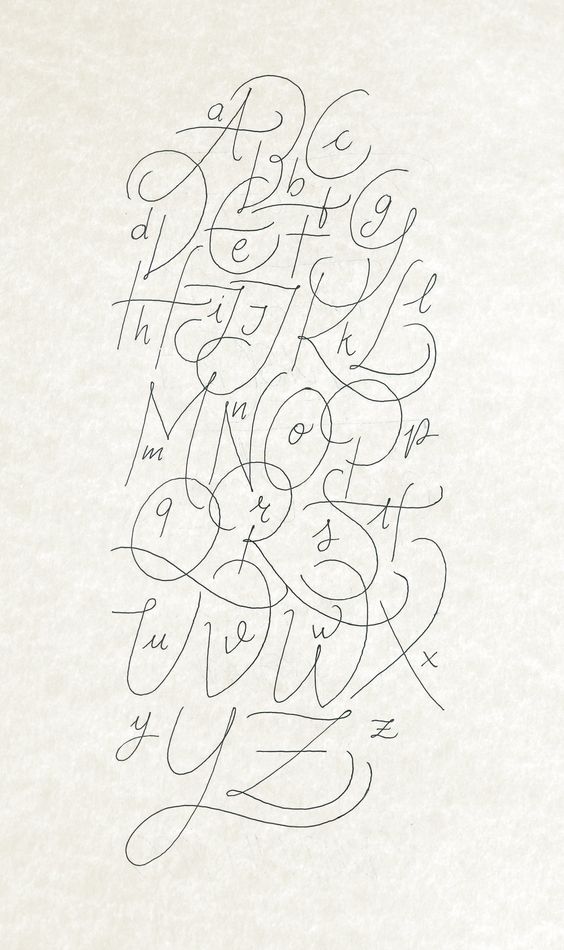 a A B b C c
d D E e F f G g
H h I i J j K k L l
M m N n O o P p
Q q R r S s T t
U u V v W w X x
y Y Z z